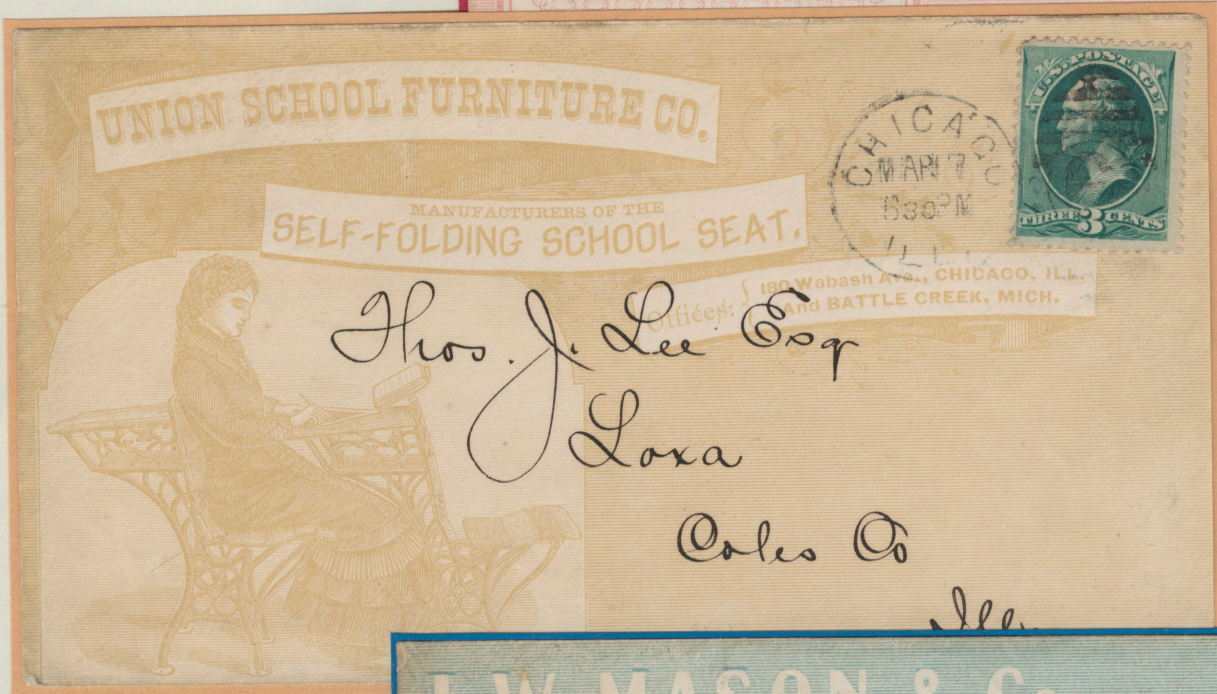 UNION SCHOOL FURNITURE CO.
MANUFACTURERS OF THE
SELF-FOLDING SCHOOL SEAT.
Offices: { 180 Wabash Ave., CHICAGO, ILL.
And BATTLE CREEK, MICH.
CHICAGO
MAR 7
630PM
ILL.
U.S. POSTAGE
THREE 3 CENTS
Thos. J. Lee Esq
Loxa
Coles Co
Ills
J. W. MASON & C